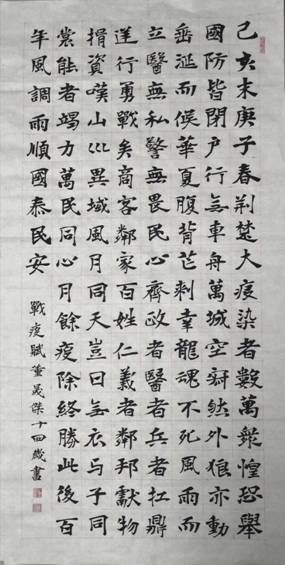 己亥末庚子春荆楚大疫染者數萬衆惶恐舉
國防皆閉户行无車舟萬城空豺然外狼亦動
垂涎而候華夏腹背芒刺幸龍魂不死風雨而
立醫無私警無畏民心齊政者醫者兵者扛鼎
逆行勇戰矣商客鄰家百姓仁義者鄰邦獻物
捐資嘆山巛異域風月同天豈曰无衣与子同
裳能者竭力萬民同心月餘疫除終勝此後百
年風調雨順國泰民安
戰疫賦董晟傑十四歲書